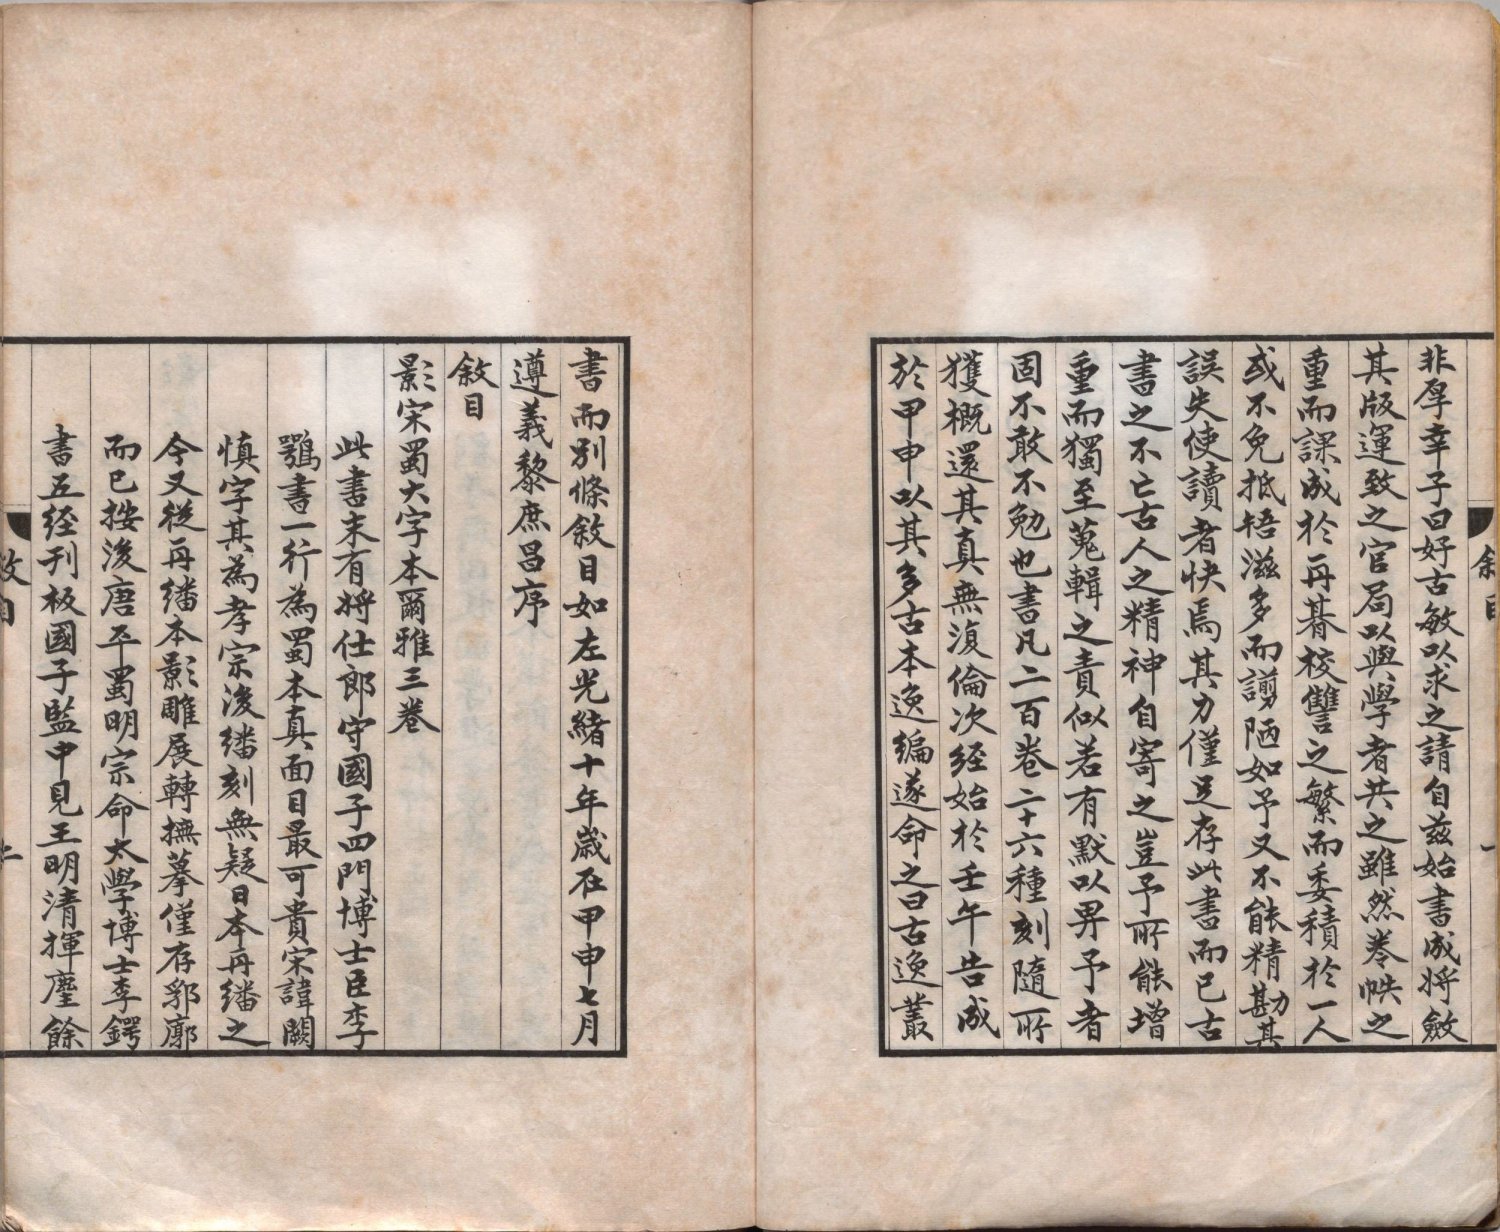 非厚幸子曰好古敏以求之請自茲始書成將斂
其版運致之官局以與學者共之雖然卷帙之
重而課成於再朞校讐之繁而委積於一人
或不免抵牾滋多而謭陋如予又不能精勘其
誤失使讀者快焉其力僅足存此書而已古
書之不亡古人之精神自寄之豈予所能增
重而獨至蒐輯之責似若有默以畀予者
固不敢不勉也書凡二百卷二十六種刻隨所
獲概還其真無復倫次經始於壬午告成
於甲申以其多古本逸編遂命之曰古逸叢
書而別條敘目如左光緒十年歲在甲申七月
遵義黎庶昌序
敘目
影宋蜀大字本爾雅三卷
此書末有將仕郎守國子四門博士臣李
鶚書一行為蜀本真面目最可貴宋諱闕
慎字其為孝宗後繙刻無疑日本再繙之
今又從再繙本影雕展轉撫摹僅存郛廓
而已按後唐平蜀明宗命太學博士李鍔
書五經刊板國子監中見王明清揮麈餘
敘目
一
敘目